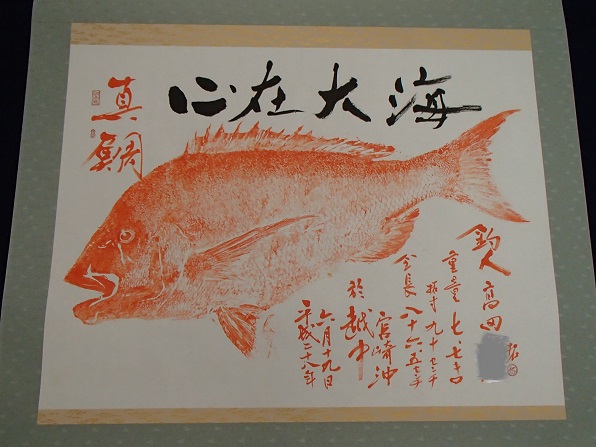 海大在心
真鯛
釣人 高田
重量 七.七キロ
拓寸 九十センチ
全長 八十六.五センチ
宮崎沖
於 越中
六月十九日
平成二十八年